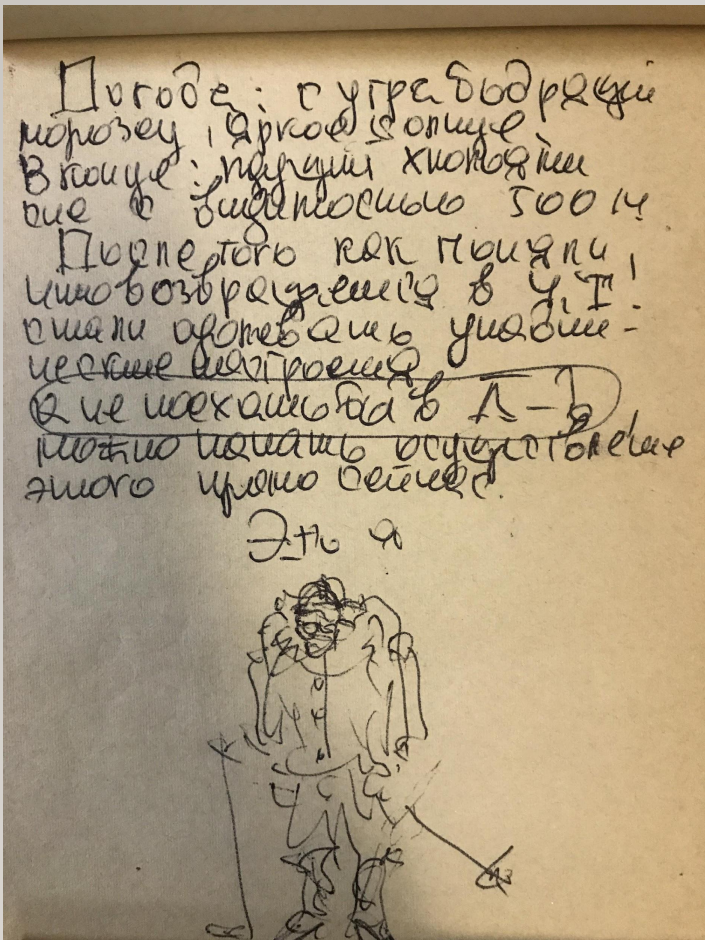 Погода: с утра бодрящий
морозец, яркое солнце
В конце: падущий хлопьями
снег с видимостью 500 м
После того как поняли,
что возвращаемся в Ч.Т.!
стали одолевать упадни-
ческие настроения
а не поехать бы в Л-д,
можно начать осуществление
этого прямо сейчас.
Это я